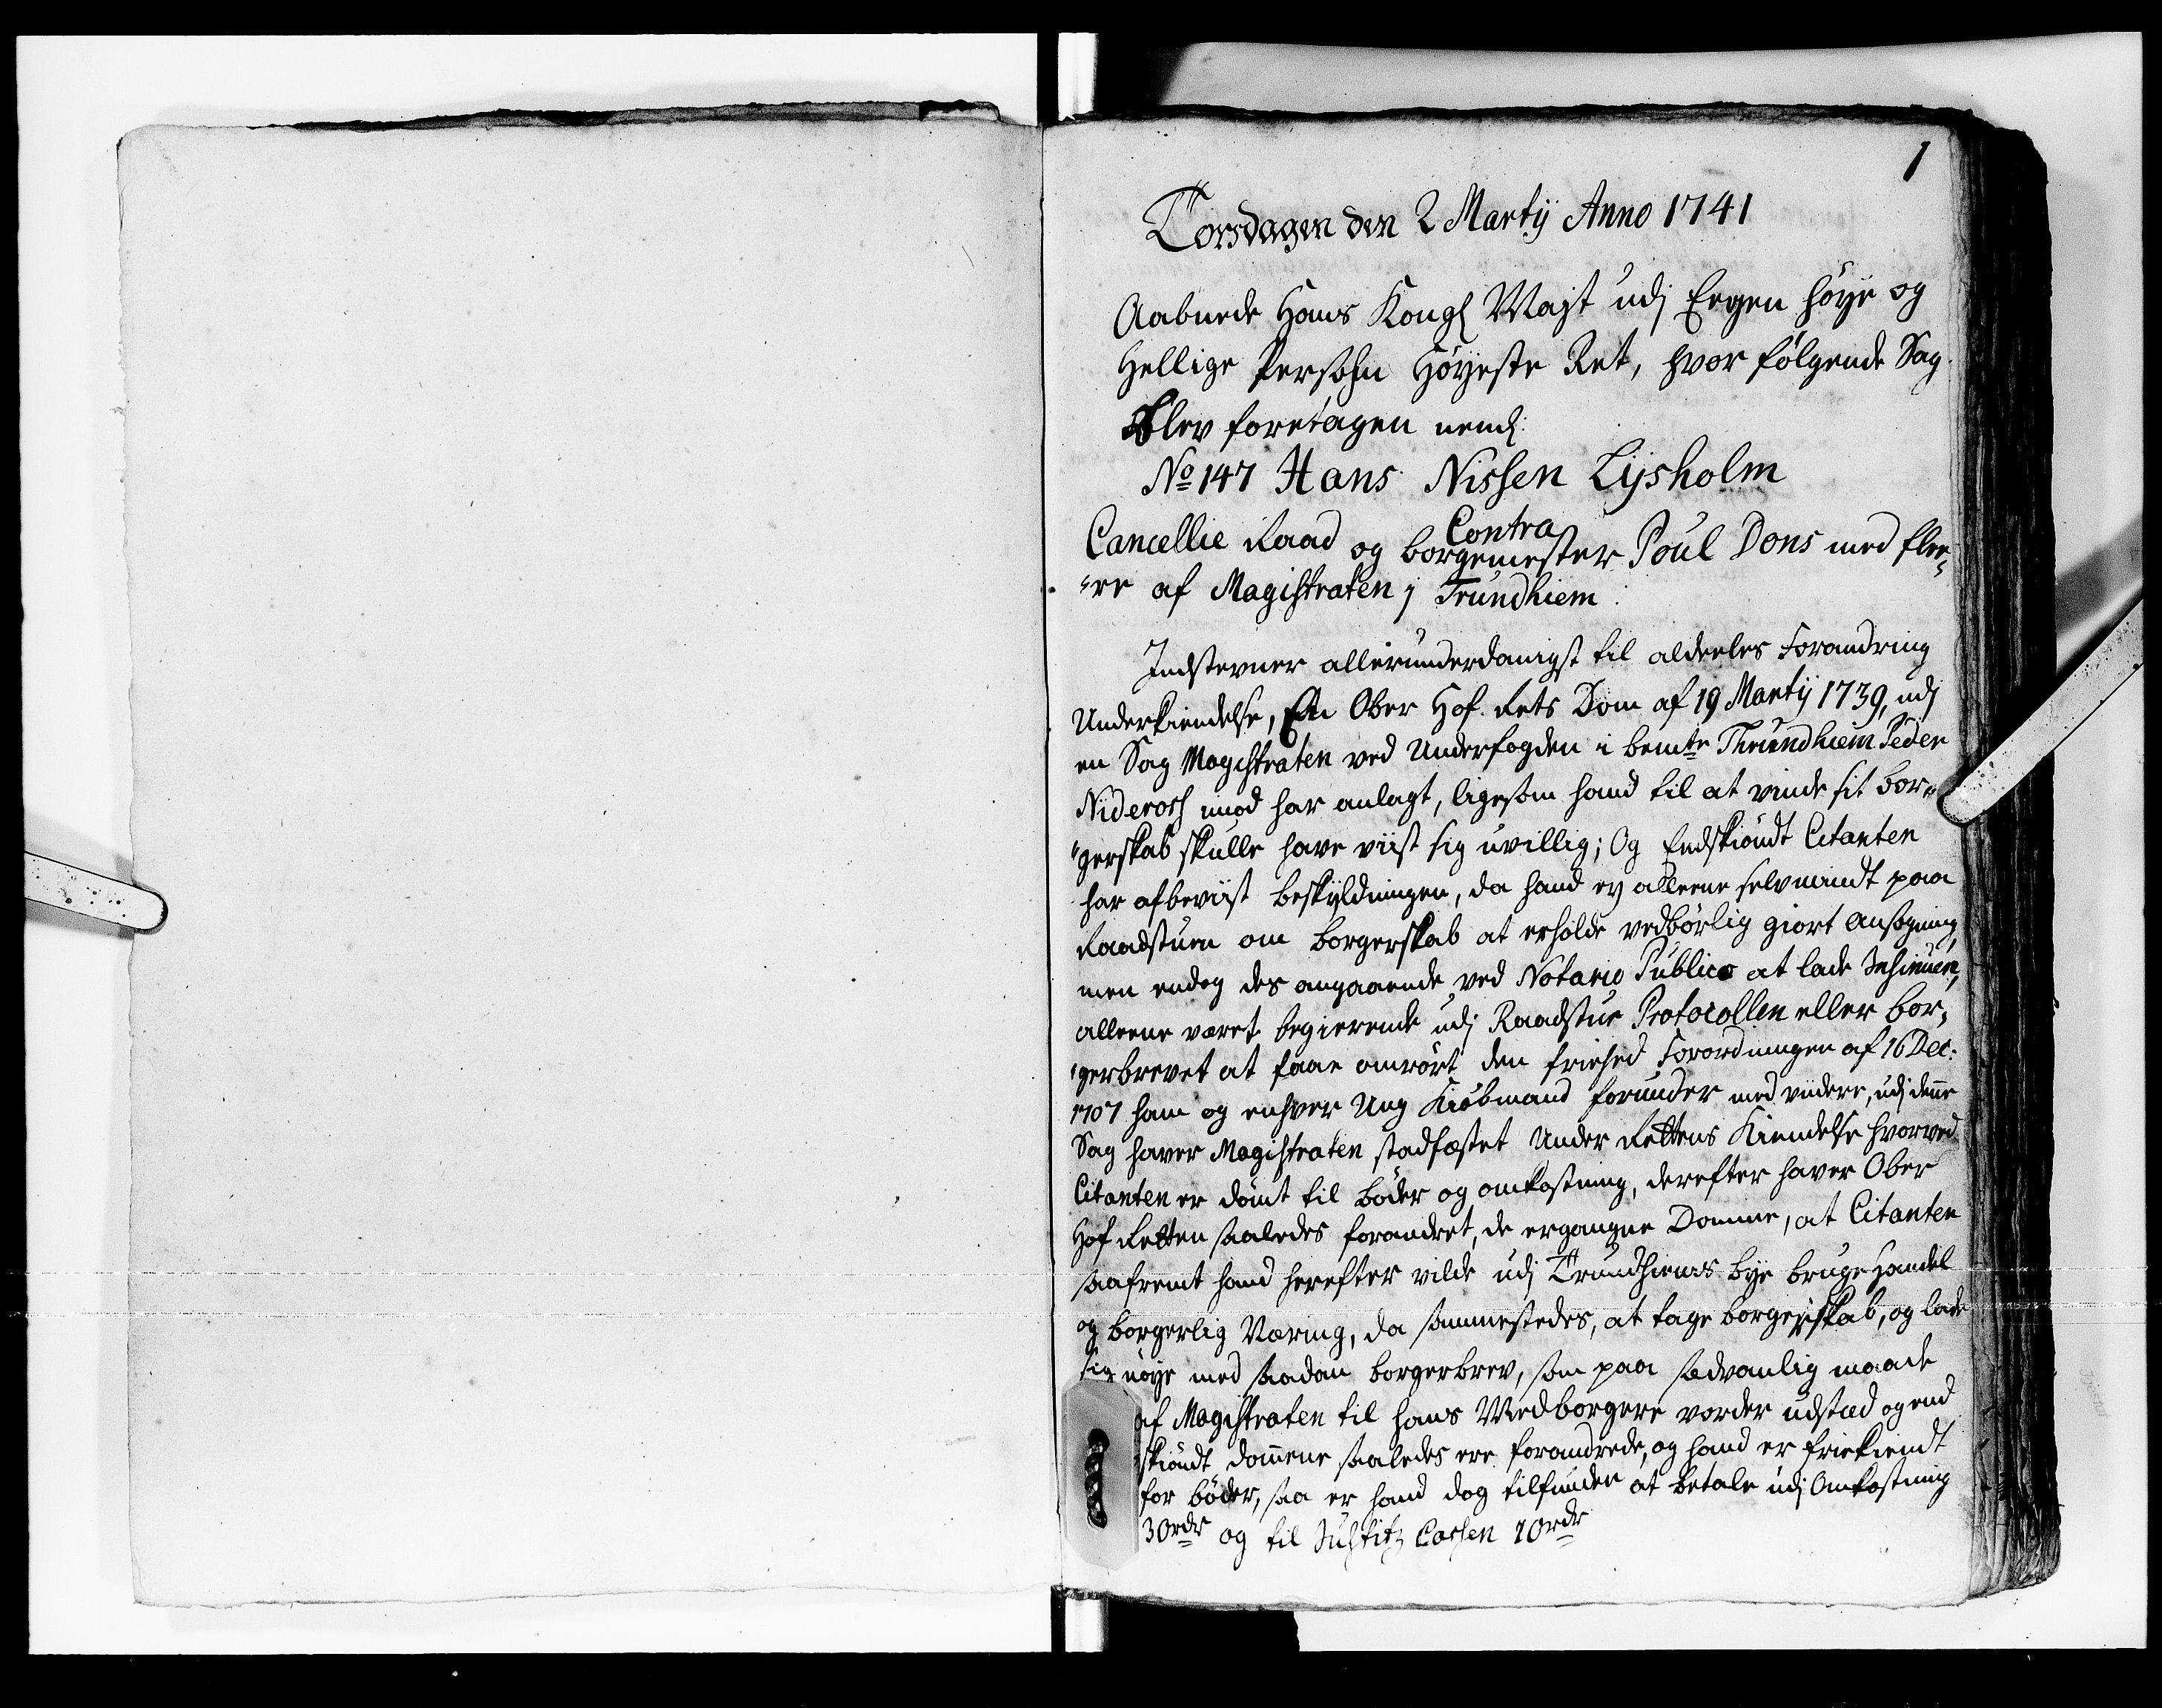 1
Torsdagen den 2 Martÿ Anno 1741
Aabnede Hans Kongl Mayt udj Eegen høye og
Hellige Persohn Høyeste Ret, hvor følgende Sag
Blev foretagen neml.
No 147 Hans Nissen Lysholm
Contra
Cancellie Raad og borgemester Poul Dons med flee-
-re af Magistraten j Trundhiem.
Indstevner allerunderdanigst til aldeeles Forandring
Underkiendelse, En Ober Hof Rets Dom af 19 Martÿ 1739, udj
en Sag Magistraten ved Underfogden i bemte Thrundhiem Peder
Niderosf imod har anlagt, ligesom hand til at vinde sit bor-
"gerskab skulle have viist sig uvillig; Og Endskiøndt Citanten
har afbeviist beskyldningen, da hand ey alleene selvmindt paa
Raadstuen om borgerskab at erholde vedbørlig giort ansøgning,
men endog des angaaende ved Notario Publico at lade Insinuere,
alleene været begierende udj Raadstue Protocollen eller bor-
"gerbrevet at faae omrørt den friehed Forordningen af 16 Dec:
1707 ham og enhver Ung Kiøbmand forunder med viidere, udj denne
Sag haver Magistraten stadfæstet Under Rettens Kiendelse hvorved
Citanten er dømt til bøder og omkostning, derefter haver Ober
Hof Retten saaledes forandret, de ergangne Domme, at Citanten
saafremt hand herefter vilde udj Trundhiems bye bruge Handel
og borgerlig Næring, da sammestedes, at tage borgerskab, og lade
sig nøye med saadan borgerbrev, som paa sædvanlig maade
af Magistraten til hans Medborgere vorder udstæd og end
skiøndt domene saaledes ere forandrede, og hand er friekiendt
for bøder, saa er hand dog tilfunden at betale udj Omkostning
30rdr og til Justitz Cassen 10rdr